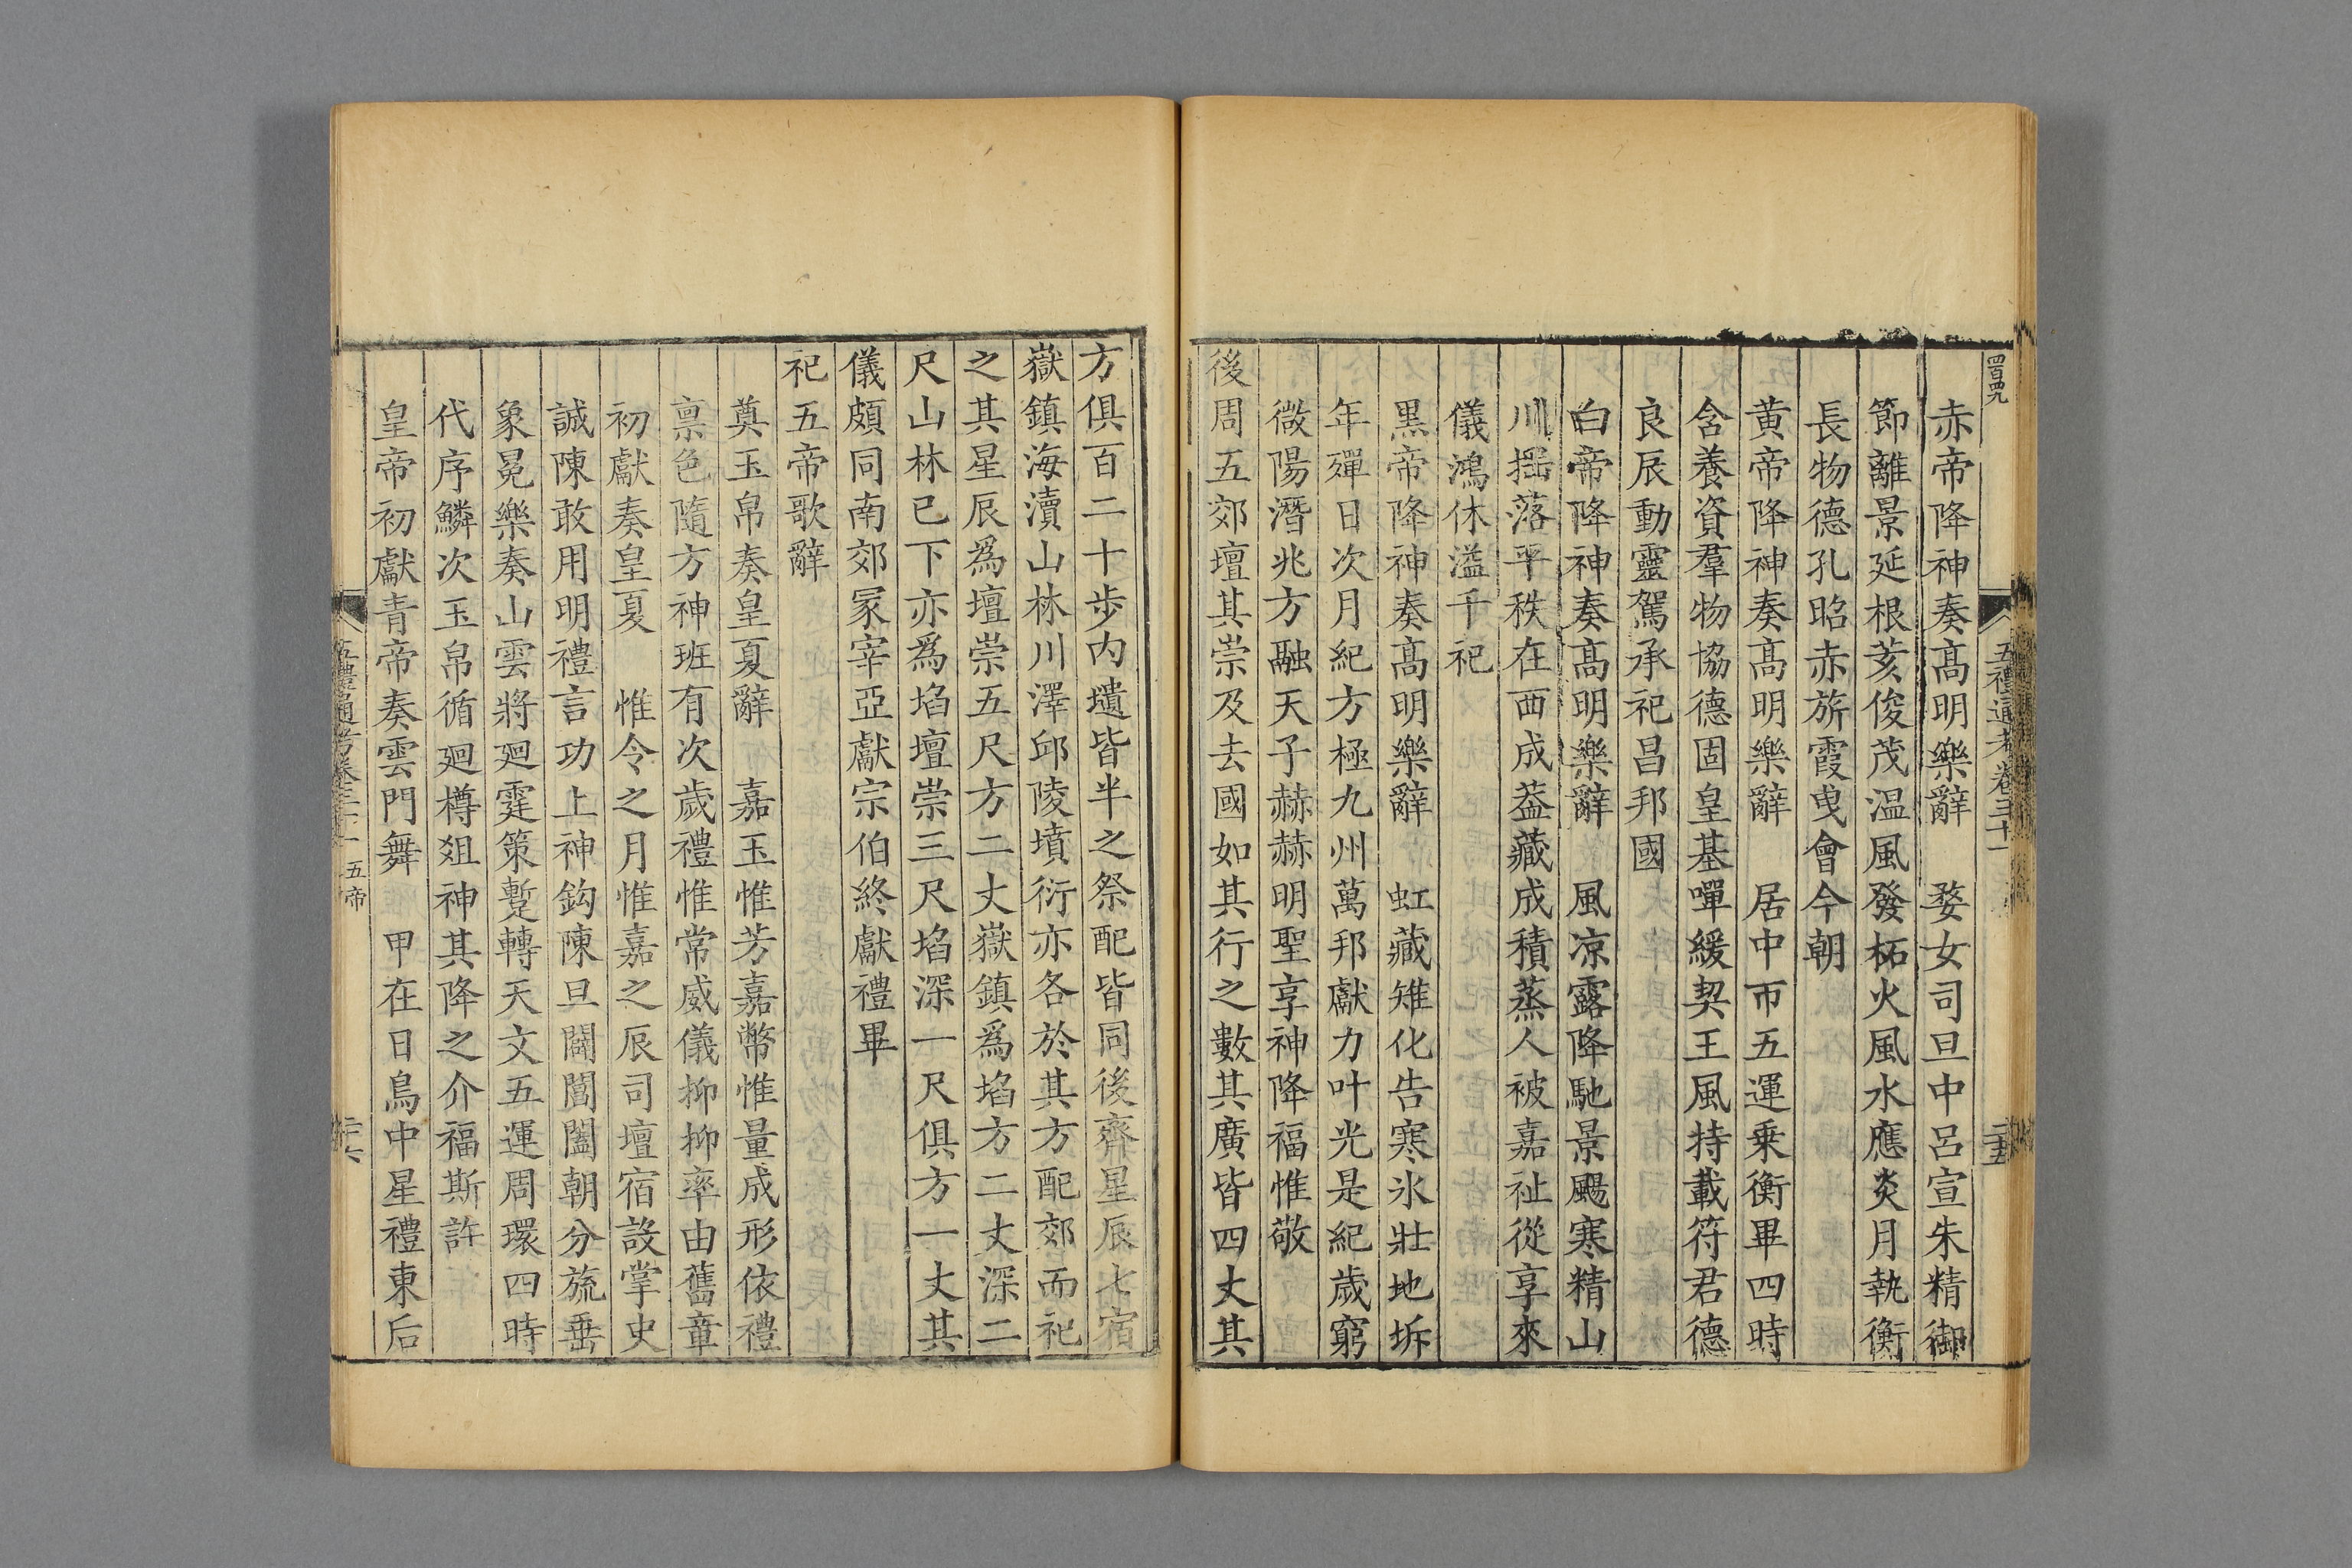 四百九
五禮通考卷三十一
二十五
赤帝降神奏高明樂辭　婺女司旦中呂宣朱精御
節離景延根荄俊茂溫風發柘火風水應炎月執衡
長物德孔昭赤旂霞曳會今朝
黃帝降神奏高明樂辭　居中帀五運乗衡畢四時
含養資羣物協德固皇基嘽緩契王風持載符君德
良辰動靈駕承祀昌邦國
白帝降神奏高明樂辭　風凉露降馳景颺寒精山
川揺落平秩在西成葢藏成積蒸人被嘉祉從享來
儀鴻休溢千祀
黑帝降神奏高明樂辭　虹藏雉化告寒氷壯地坼
年殫日次月紀方極九州萬邦獻力叶光是紀歲窮
微陽潛兆方融天子赫赫明聖享神降福惟敬
後周五郊壇其崇及去國如其行之數其廣皆四丈其
方俱百二十步内壝皆半之祭配皆同後齊星辰七宿
嶽鎮海瀆山林川澤邱陵墳衍亦各於其方配郊而祀
之其星辰爲壇崇五尺方二丈嶽鎮爲埳方二丈深二
尺山林已下亦爲埳壇崇三尺埳深一尺俱方一丈其
儀頗同南郊冢宰亞獻宗伯終獻禮畢
祀五帝歌辭
奠玉帛奏皇夏辭　嘉玉惟芳嘉幣惟量成形依禮
禀色隨方神班有次歲禮惟常威儀抑抑率由舊章
初獻奏皇夏　惟令之月惟嘉之辰司壇宿設掌史
誠陳敢用明禮言功上神鈎陳旦闢閶闔朝分旒垂
象冕樂奏山雲將廻霆策蹔轉天文五運周環四時
代序鱗次玉帛循廻樽俎神其降之介福斯許
皇帝初獻青帝奏雲門舞　甲在日鳥中星禮東后
五禮通考卷三十一　五帝
二十六